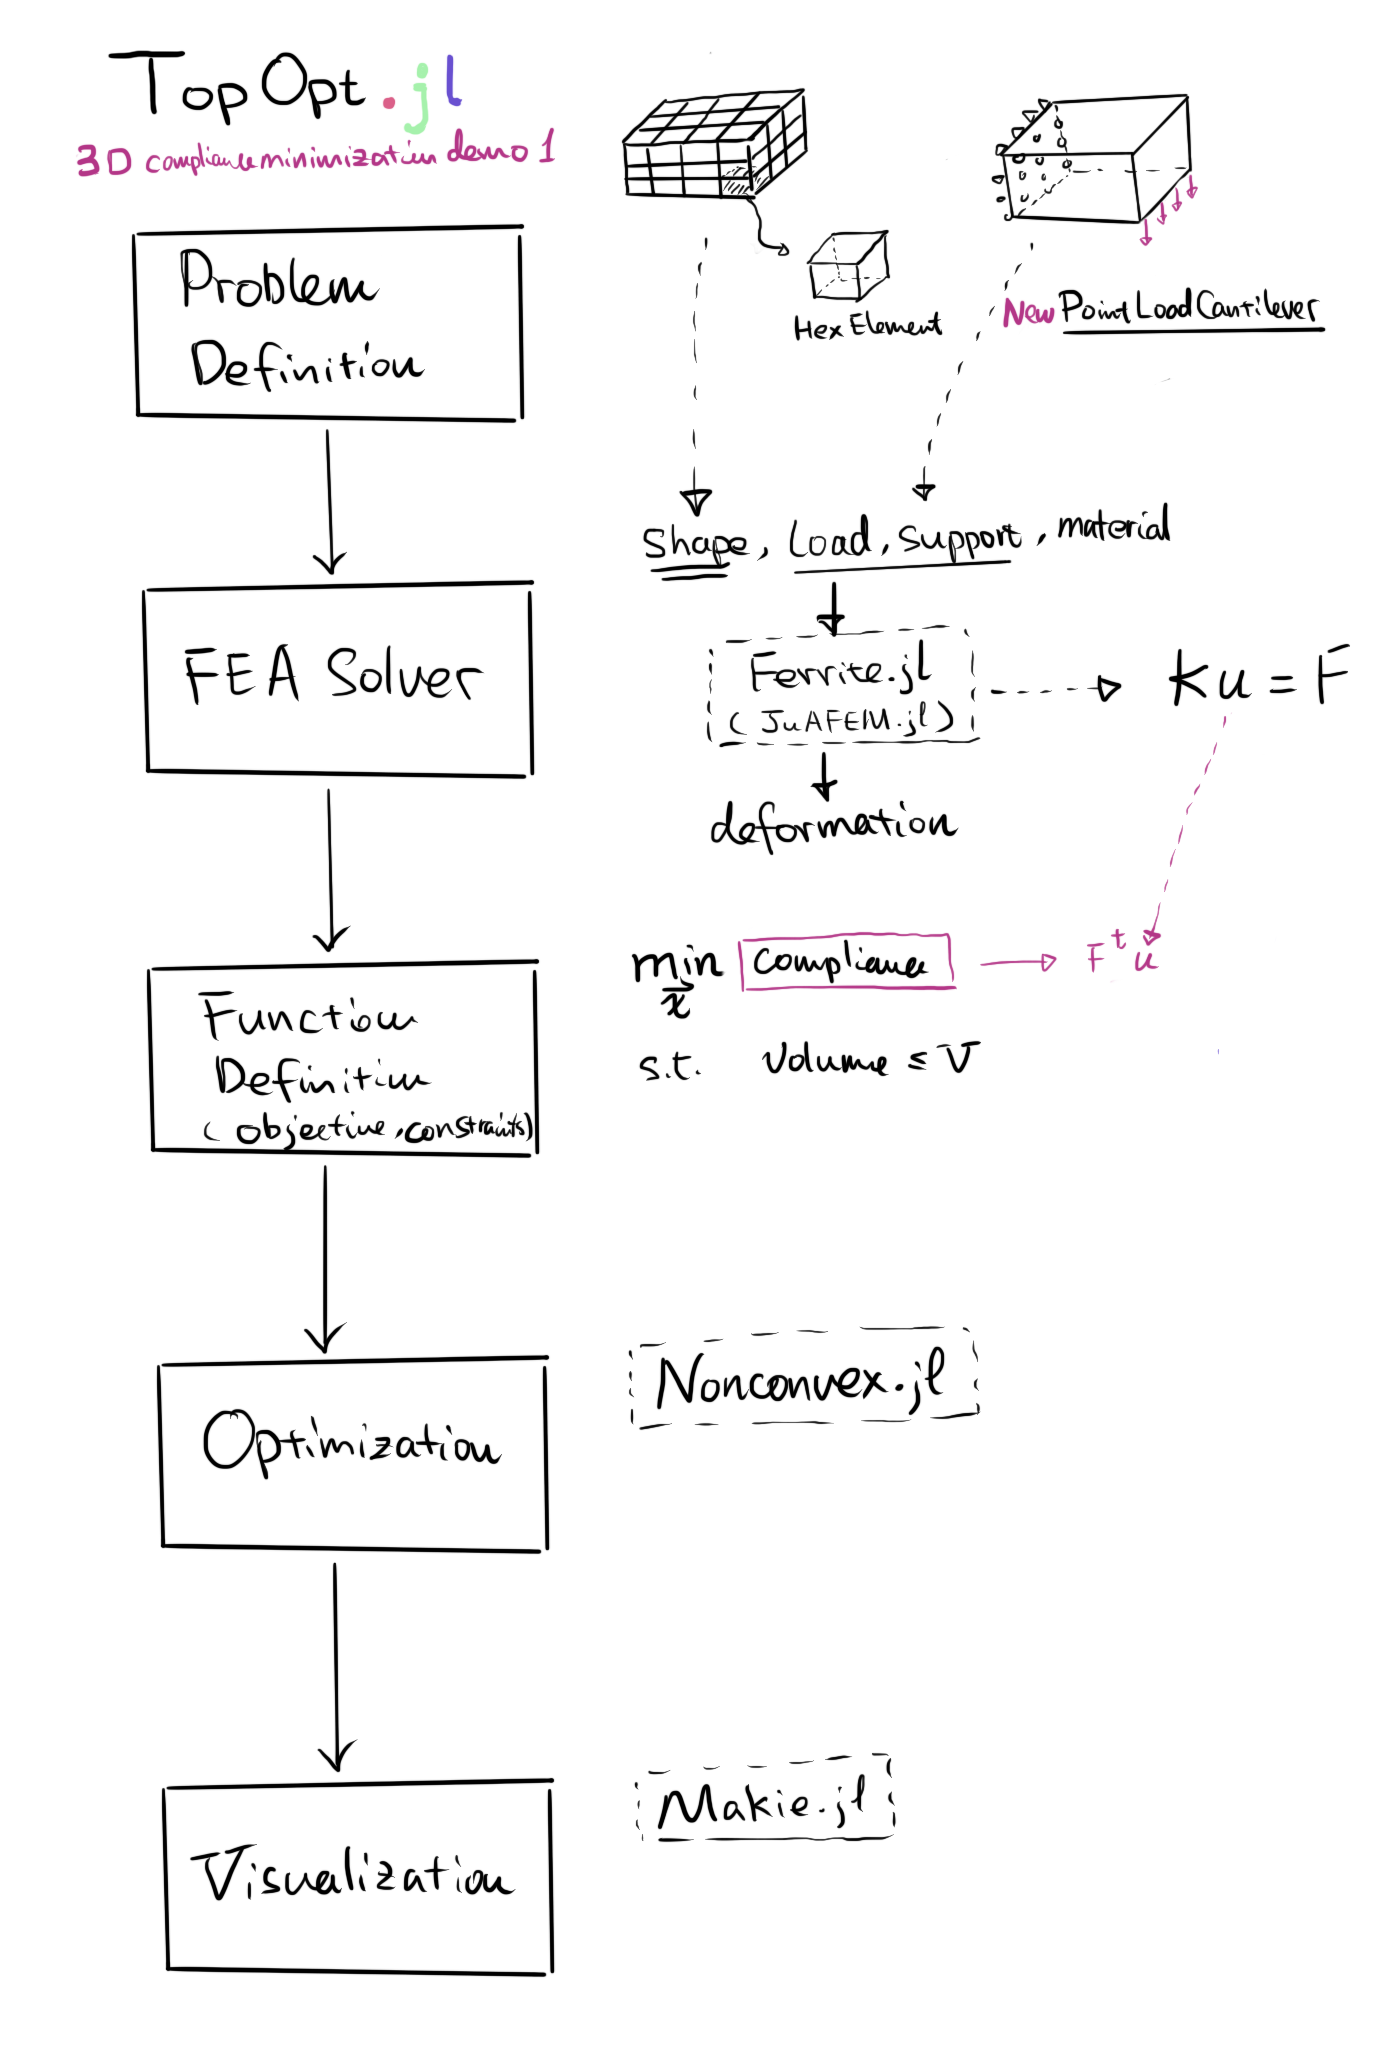 TopOpt.jl
3D compliance minimization demo 1
Problem
Definition
Hex Element
New Point Load Cantilever
shape, Load, support, material
FEA Solver
Ferrite.jl
(JuAFEM.jl)
Ku = F
deformation
Function
Definition
(objective, constraints)
min compliance
x
Fᵗu
s.t. Volume ≤ V
Optimization
Nonconvex.jl
Visualization
Makie.jl